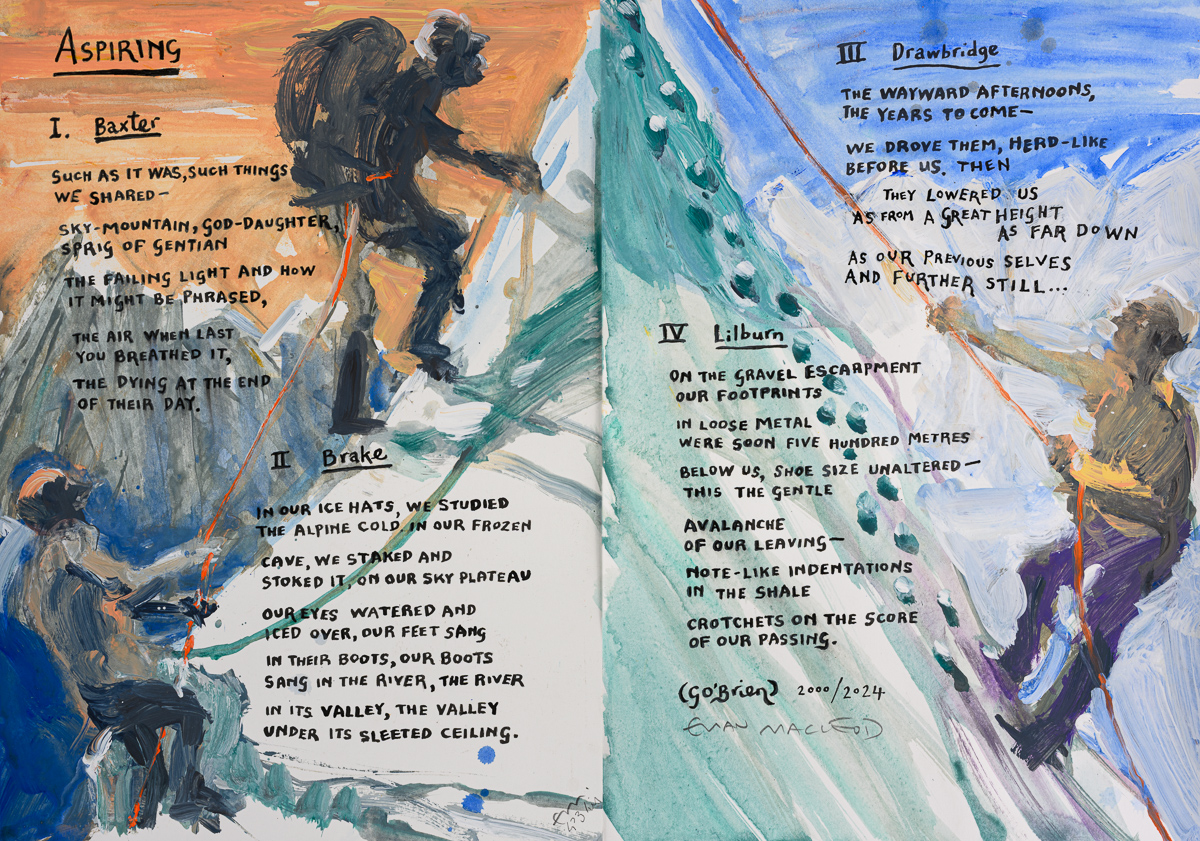 ASPIRING
I. Baxter
SUCH AS IT WAS, SUCH THINGS
WE SHARED—
SKY-MOUNTAIN, GOD-DAUGHTER,
SPRIG OF GENTIAN
THE FAILING LIGHT AND HOW
IT MIGHT BE PHRASED,
THE AIR WHEN LAST
YOU BREATHED IT,
THE DYING AT THE END
OF THEIR DAY.
II Brake
IN OUR ICE HATS, WE STUDIED
THE ALPINE COLD IN OUR FROZEN
CAVE, WE STAKED AND
STOKED IT, ON OUR SKY PLATEAU
OUR EYES WATERED AND
ICED OVER, OUR FEET SANG
IN THEIR BOOTS, OUR BOOTS
SANG IN THE RIVER, THE RIVER
IN ITS VALLEY, THE VALLEY
UNDER ITS SLEETED CEILING.
III Drawbridge
THE WAYWARD AFTERNOONS,
THE YEARS TO COME—
WE DROVE THEM, HERD-LIKE
BEFORE US. THEN
THEY LOWERED US
AS FROM A GREAT HEIGHT
AS FAR DOWN
AS OUR PREVIOUS SELVES
AND FURTHER STILL...
IV Lilburn
ON THE GRAVEL ESCARPMENT
OUR FOOTPRINTS
IN LOOSE METAL
WERE SOON FIVE HUNDRED METRES
BELOW US, SHOE SIZE UNALTERED—
THIS THE GENTLE
AVALANCHE
OF OUR LEAVING—
NOTE-LIKE INDENTATIONS
IN THE SHALE
CROTCHETS ON THE SCORE
OF OUR PASSING.
(GO'Brien) 2000/2024
EUAN MACLEOD